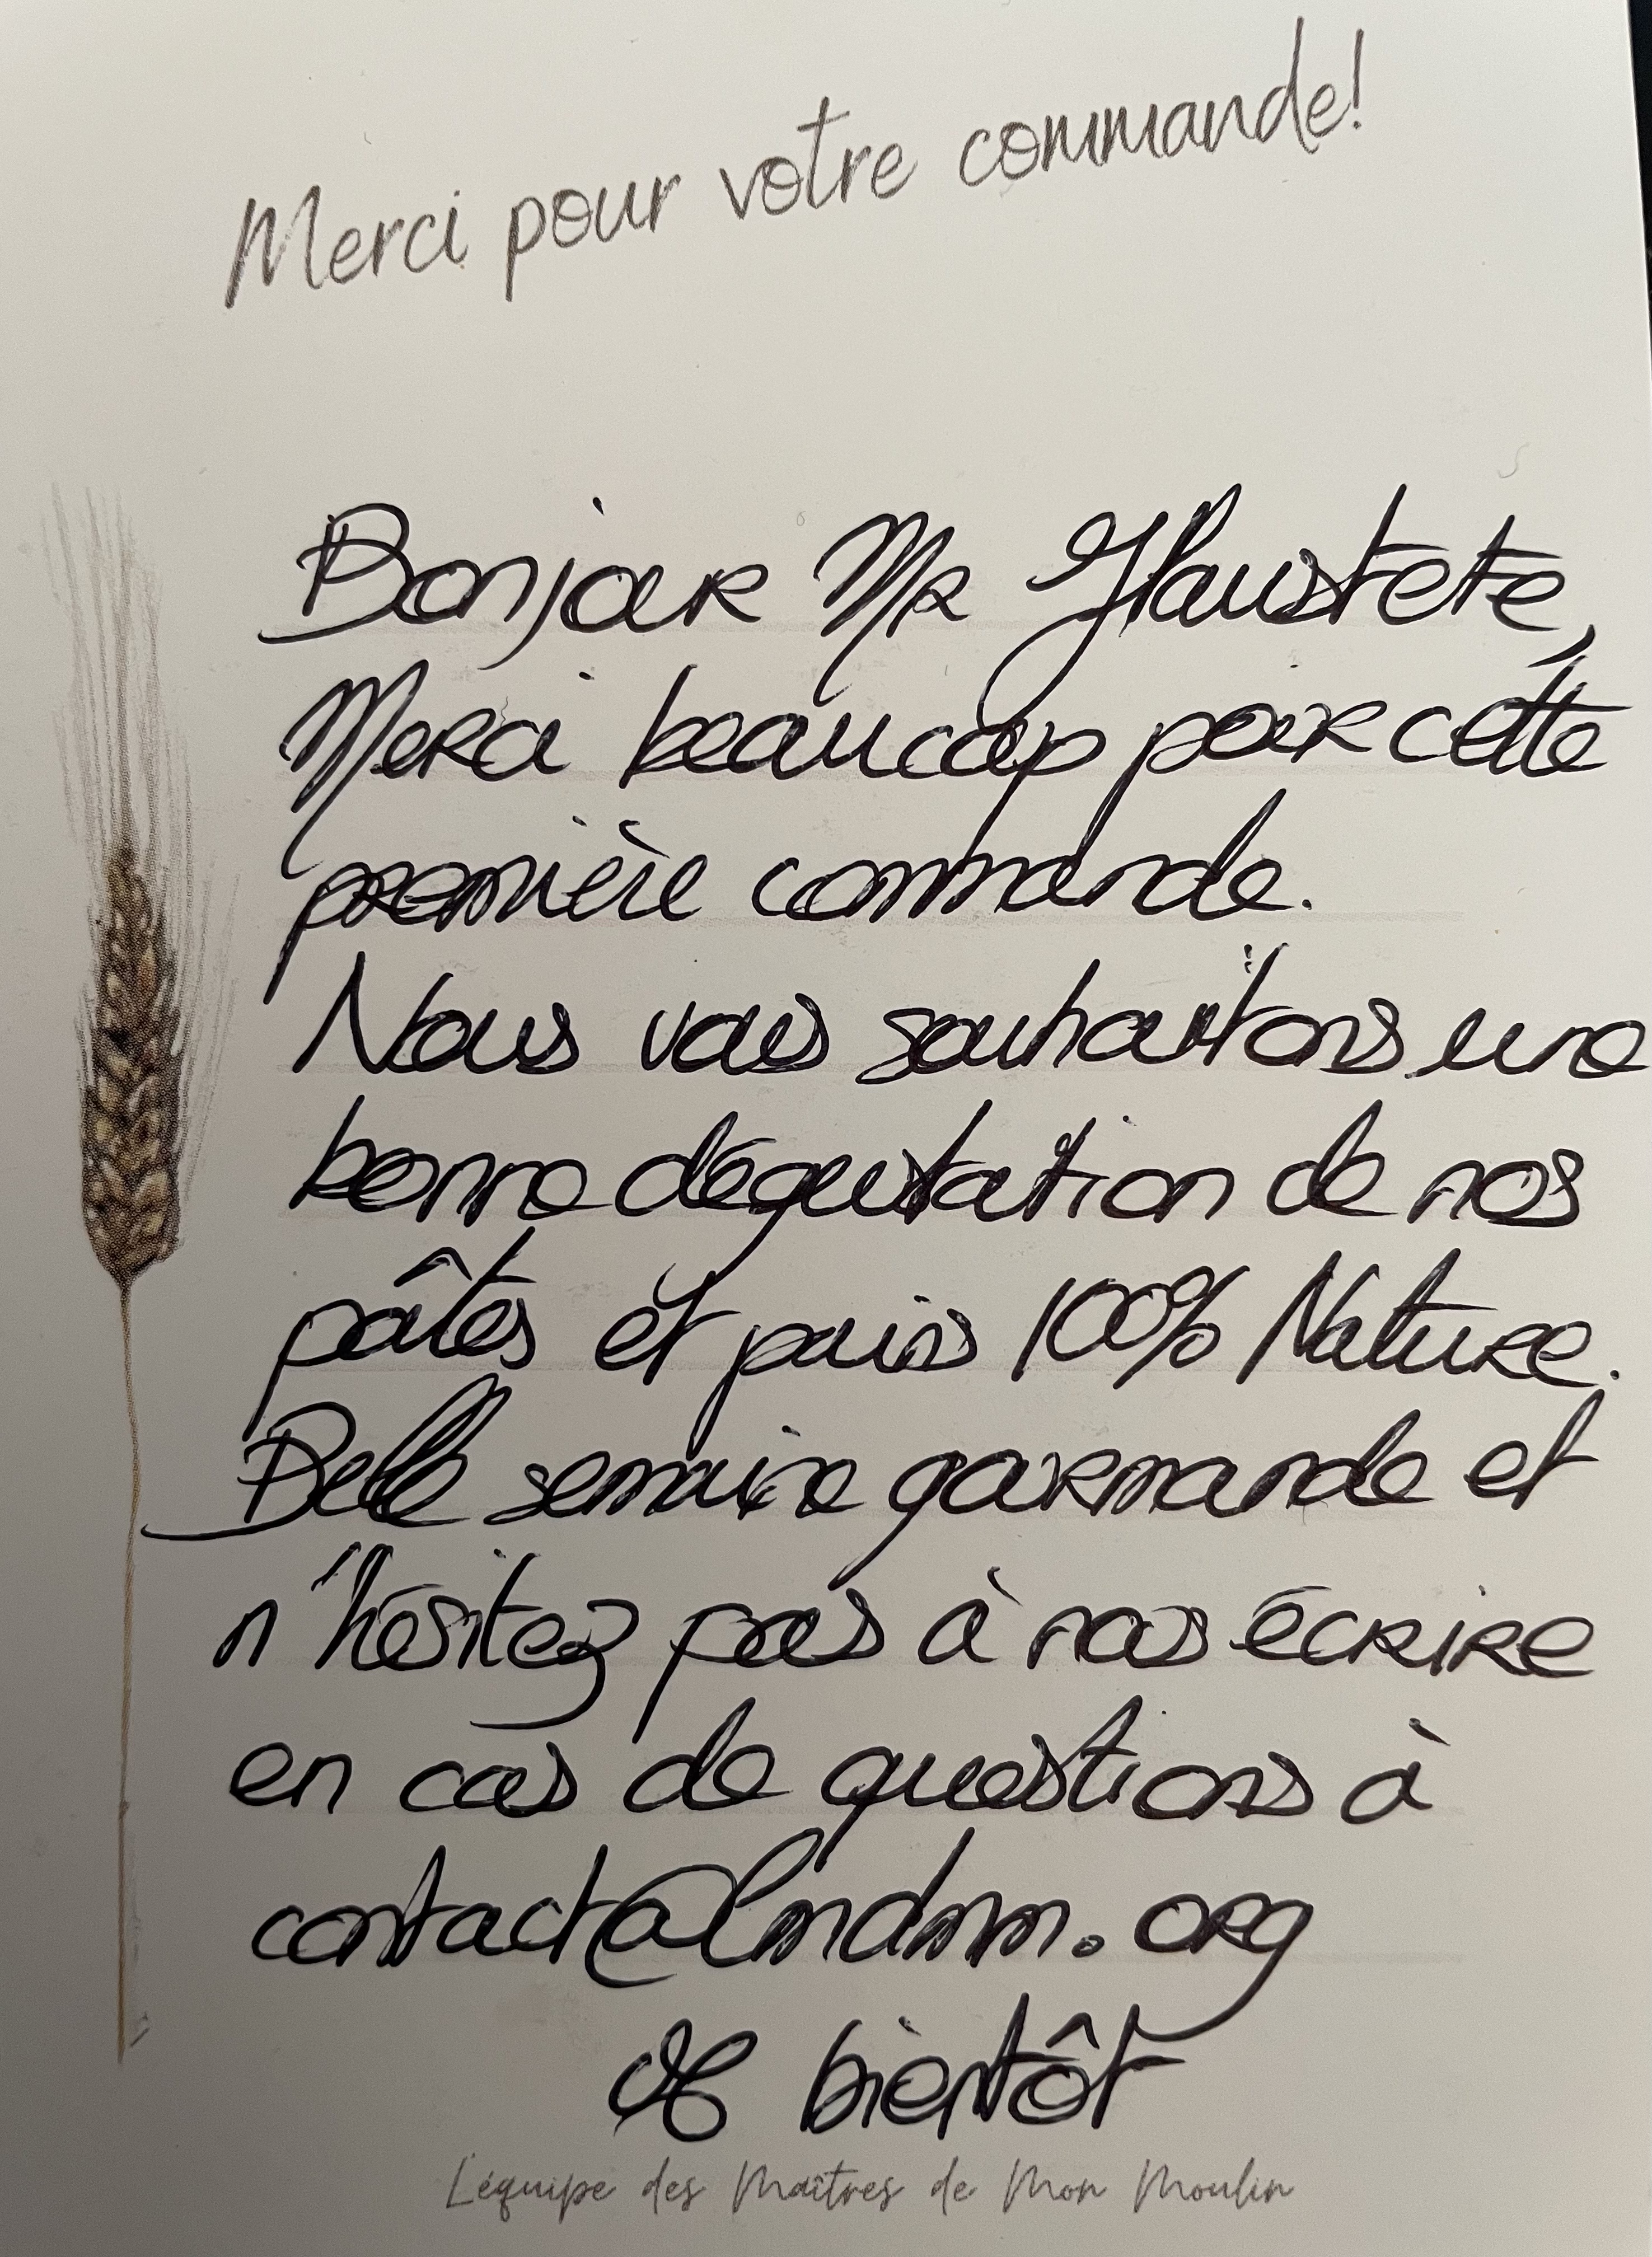 Merci pour votre commande!
Bonjour Mr Haustete,
Merci beaucoup pour cette
première commande.
Nous vous souhaitons une
bonne dégustation de nos
pâtes et pains 100% Nature.
Belle semaine gourmande et
n'hésitez pas à nous écrire
en cas de questions à
contact@lmdmm.org
À bientôt
L'équipe des Maîtres de Mon Moulin